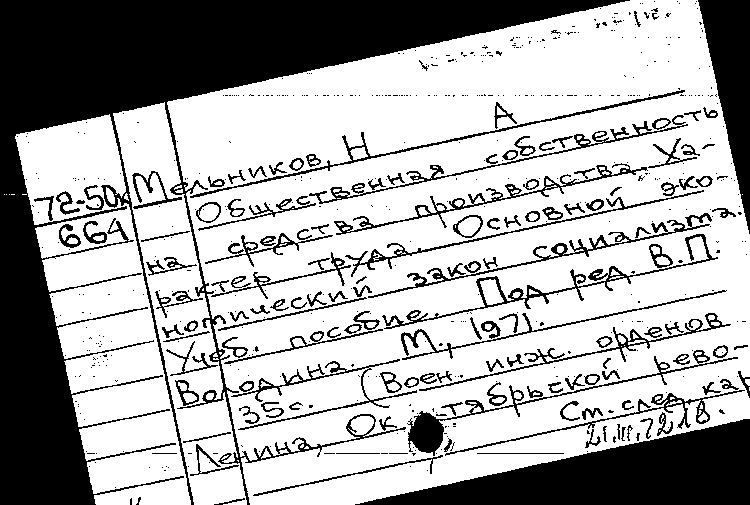 Мельников, Н А
72-50к
664
Общественная собственность
на средства производства. Ха-
рактер труда. Основной эко-
номический закон социализма.
Учеб. пособие. Под ред. В.П.
Володина. М., 1971.
35с. (Воен. инж. орденов
Ленина, Октябрьской рево-
Ст. след. кар
21.III.72 18.